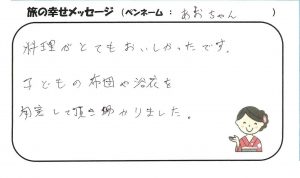 旅の幸せメッセージ（ペンネーム：あおちゃん）
料理がとてもおいしかったです。
子どもの布団や浴衣を
用意して頂き助かりました。